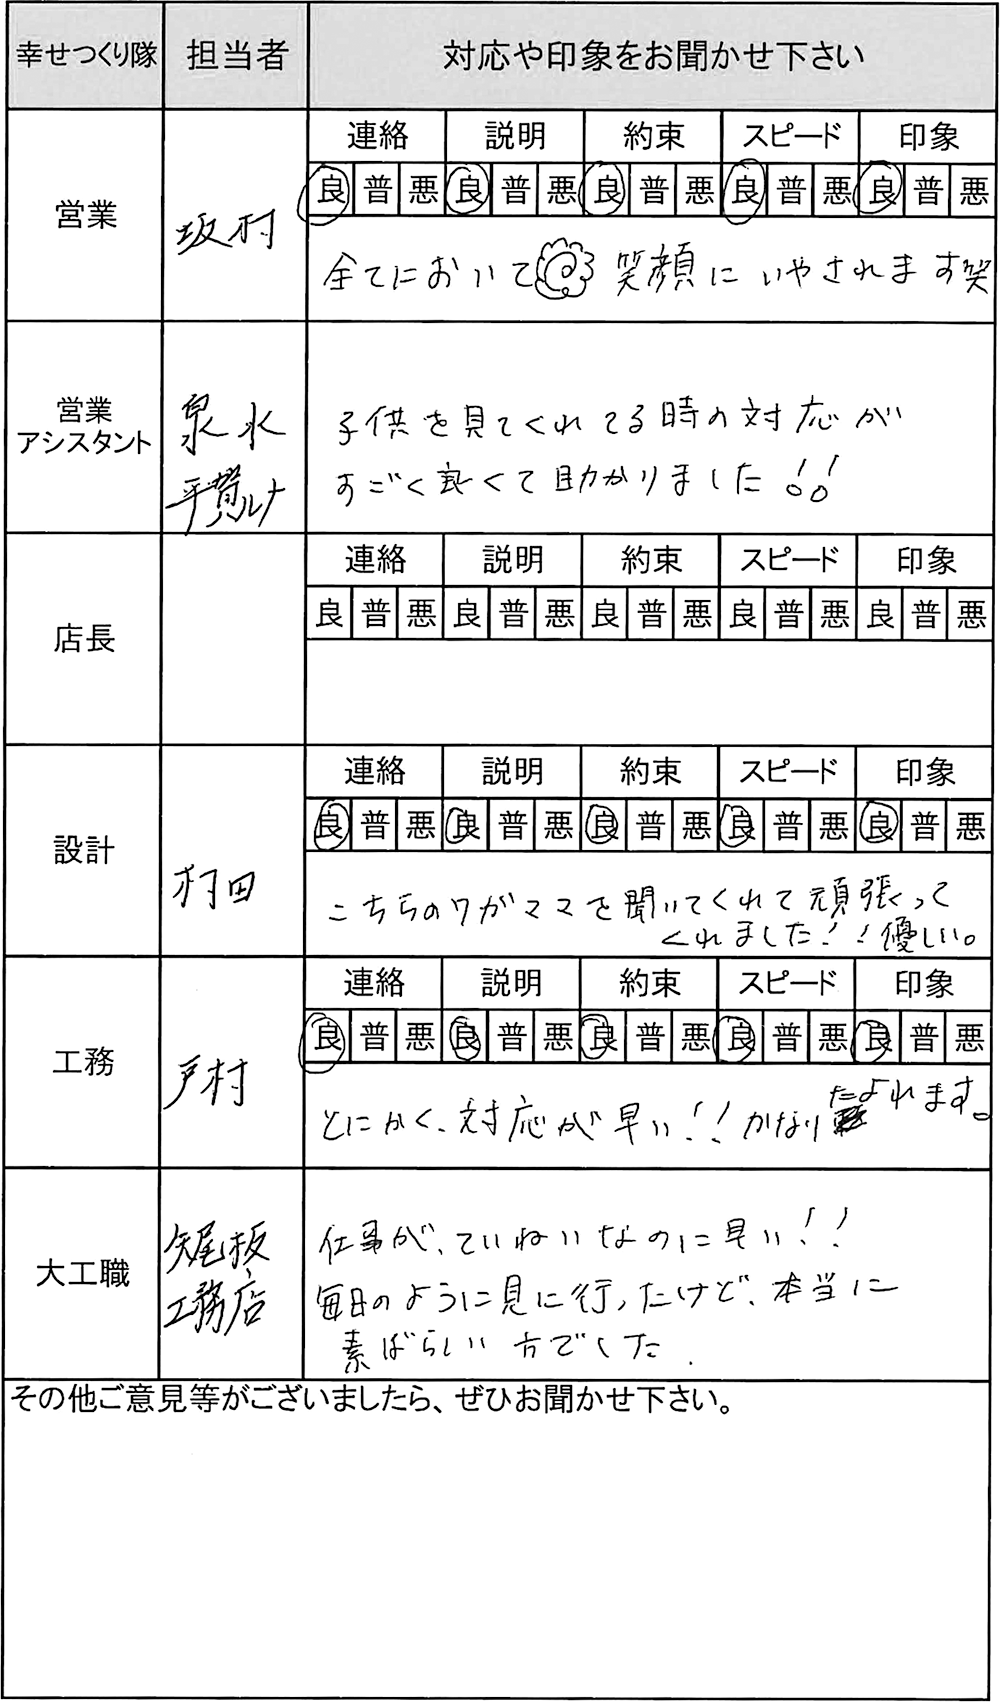 幸せつくり隊 担当者 対応や印象をお聞かせ下さい
営業 坂村
連絡 説明 約束 スピード 印象
良 普 悪 良 普 悪 良 普 悪 良 普 悪 良 普 悪
全てにおいて 笑顔にいやされます笑
営業
アシスタント
泉水
平賀ルナ
子供を見てくれてる時の対応が
すごく良くて助かりました!!
店長
連絡 説明 約束 スピード 印象
良 普 悪 良 普 悪 良 普 悪 良 普 悪 良 普 悪
設計 村田
連絡 説明 約束 スピード 印象
良 普 悪 良 普 悪 良 普 悪 良 普 悪 良 普 悪
こちらのワガママを聞いてくれて頑張って
くれました!!優しい。
工務 戸村
連絡 説明 約束 スピード 印象
良 普 悪 良 普 悪 良 普 悪 良 普 悪 良 普 悪
とにかく、対応が早い!!かなりたよれます。
大工職
矢尾板
工務店
仕事が、ていねいなのに早い!!
毎日のように見に行ったけど、本当に
素ばらしい方でした.
その他ご意見等がございましたら、ぜひお聞かせ下さい。